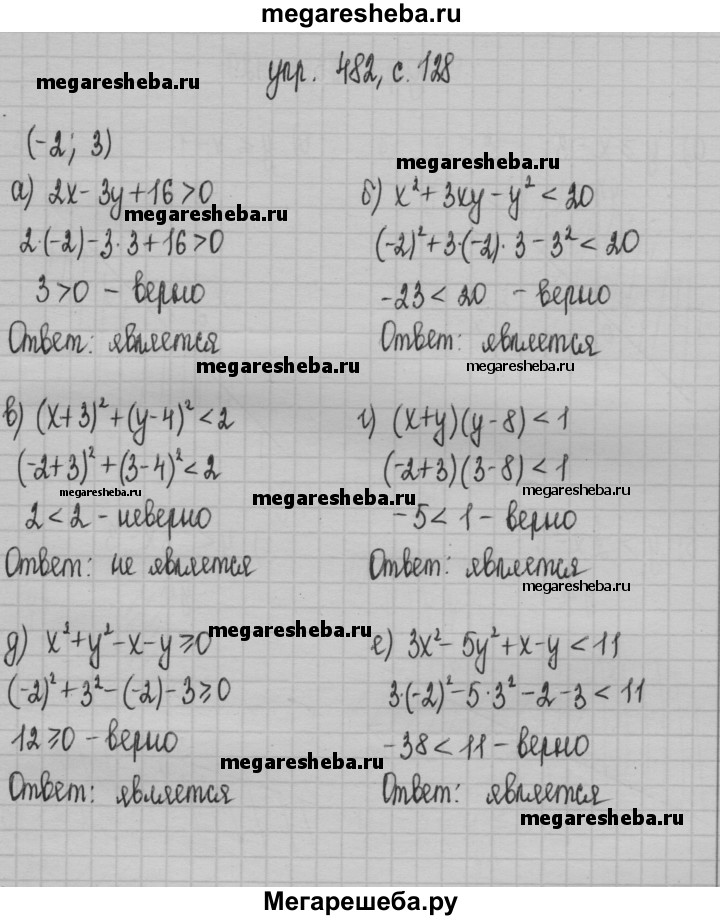 megaresheba.ru
упр. 482, с. 128
megaresheba.ru
(-2; 3)
megaresheba.ru
а) 2x - 3y + 16 > 0
megaresheba.ru
2·(-2) - 3·3 + 16 > 0
3 > 0 - верно
Ответ: является
б) x² + 3xy - y² < 20
(-2)² + 3·(-2)·3 - 3² < 20
-23 < 20 - верно
Ответ: является
megaresheba.ru
megaresheba.ru
в) (x+3)² + (y-4)² < 2
(-2+3)² + (3-4)² < 2
megaresheba.ru
2 < 2 - неверно
Ответ: не является
г) (x+y)(y-8) < 1
(-2+3)(3-8) < 1
megaresheba.ru
megaresheba.ru
-5 < 1 - верно
Ответ: является
megaresheba.ru
д) x² + y² - x - y ⩾ 0
megaresheba.ru
(-2)² + 3² - (-2) - 3 ⩾ 0
12 ⩾ 0 - верно
Ответ: является
е) 3x² - 5y² + x - y < 11
3·(-2)² - 5·3² - 2 - 3 < 11
-38 < 11 - верно
megaresheba.ru
Ответ: является
megaresheba.ru
Мегарешеба.ру